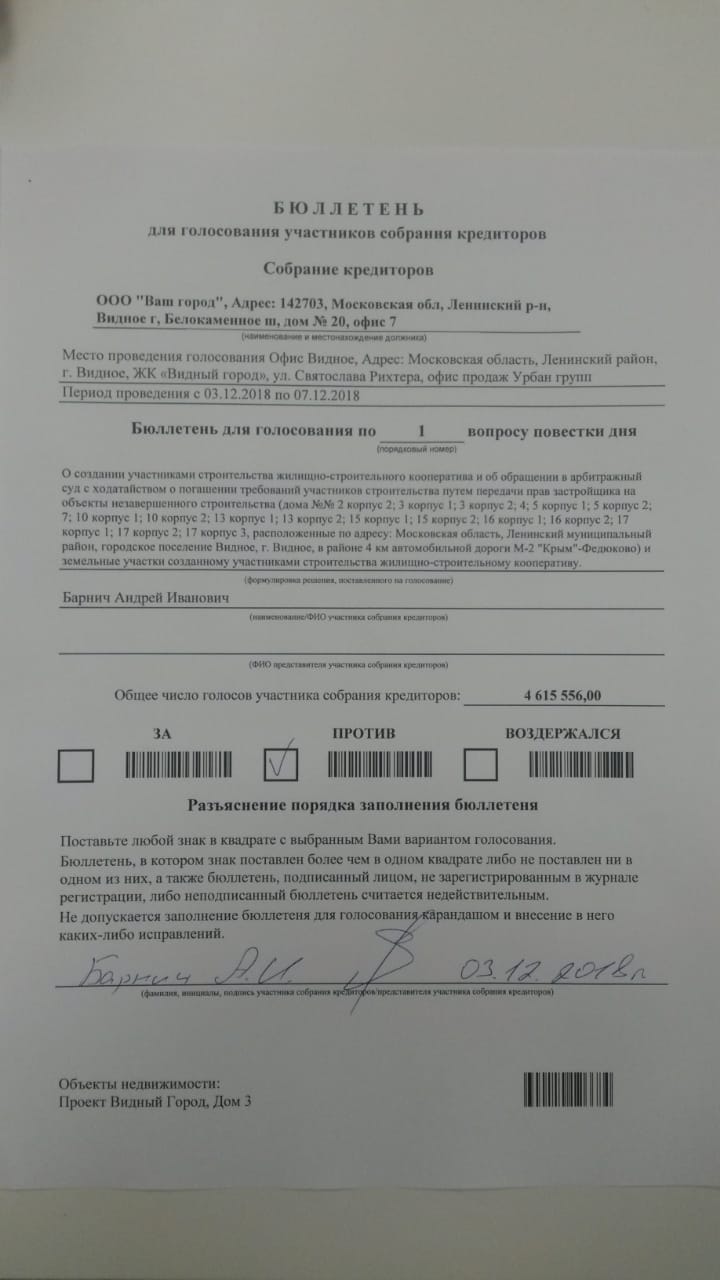 БЮЛЛЕТЕНЬ
для голосования участников собрания кредиторов
Собрание кредиторов
ООО "Ваш город", Адрес: 142703, Московская обл, Ленинский р-н,
Видное г, Белокаменное ш, дом № 20, офис 7
(наименование и местонахождение должника)
Место проведения голосования Офис Видное, Адрес: Московская область, Ленинский район,
г. Видное, ЖК «Видный город», ул. Святослава Рихтера, офис продаж Урбан групп
Период проведения с 03.12.2018 по 07.12.2018
Бюллетень для голосования по 1 вопросу повестки дня
(порядковый номер)
О создании участниками строительства жилищно-строительного кооператива и об обращении в арбитражный
суд с ходатайством о погашении требований участников строительства путем передачи прав застройщика на
объекты незавершенного строительства (дома №№ 2 корпус 2; 3 корпус 1; 3 корпус 2; 4; 5 корпус 1; 5 корпус 2;
7; 10 корпус 1; 10 корпус 2; 13 корпус 1; 13 корпус 2; 15 корпус 1; 15 корпус 2; 16 корпус 1; 16 корпус 2; 17
корпус 1; 17 корпус 2; 17 корпус 3, расположенные по адресу: Московская область, Ленинский муниципальный
район, городское поселение Видное, г. Видное, в районе 4 км автомобильной дороги М-2 "Крым"-Федюково) и
земельные участки созданному участниками строительства жилищно-строительному кооперативу.
(формулировка решения, поставленного на голосование)
Барнич Андрей Иванович
(наименование/ФИО участника собрания кредиторов)
(ФИО представителя участника собрания кредиторов)
Общее число голосов участника собрания кредиторов: 4 615 556,00
ЗА ПРОТИВ ВОЗДЕРЖАЛСЯ
Разъяснение порядка заполнения бюллетеня
Поставьте любой знак в квадрате с выбранным Вами вариантом голосования.
Бюллетень, в котором знак поставлен более чем в одном квадрате либо не поставлен ни в
одном из них, а также бюллетень, подписанный лицом, не зарегистрированным в журнале
регистрации, либо неподписанный бюллетень считается недействительным.
Не допускается заполнение бюллетеня для голосования карандашом и внесение в него
каких-либо исправлений.
Барнич А.И. 03.12.2018г
(фамилия, инициалы, подпись участника собрания кредиторов/представителя участника собрания кредиторов)
Объекты недвижимости:
Проект Видный Город, Дом 3